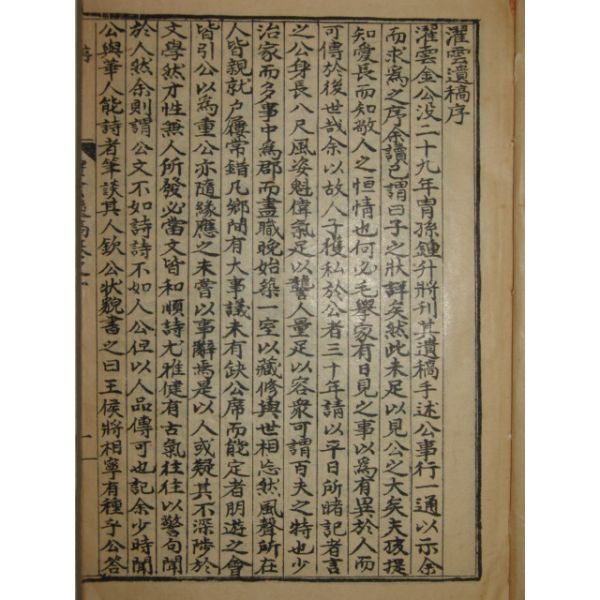 濯雲遺稿序
濯雲金公沒二十九年胄孫鍾升將刊其遺稿手述公事行一通以示余
而求爲之序余讀已謂曰子之狀詳矣然此未足以見公之大矣夫孩提
知愛長而知敬人之恒情也何必毛擧家有日見之事以爲有異於人而
可傳於後世哉余以故人子獲私於公者三十年請以平日所睹記者言
之公身長八尺風姿魁偉氣足以讋人量足以容衆可謂百夫之特也少
治家而多事中爲郡而盡職晚始築一室以藏修與世相忘然風聲所在
人皆親就户屨常錯凡鄉間有大事議未有缺公席而能定者朋遊之會
皆引公以爲重公亦隨緣應之未嘗以事辭焉是以人或疑其不深陟於
文學然才性無人所發必當文皆和順詩尤雅健有古氣往往以警句聞
於人然余則謂公文不如詩詩不如人公但以人品傳可也記余少時聞
公與華人能詩者筆談其人欽公狀貌書之曰王侯將相寧有種乎公答
序
一